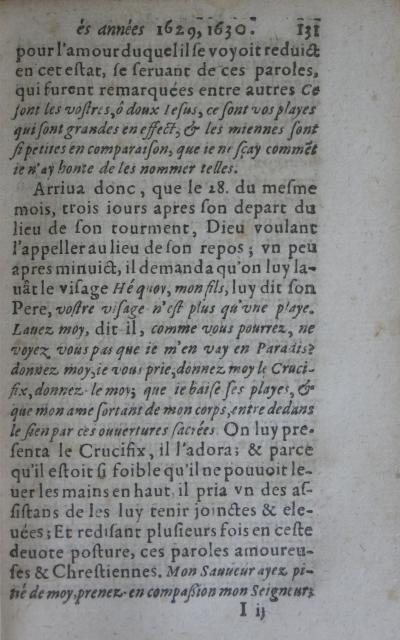 és années 1629, 1630. 131
pour l'amour duquel il se voyoit reduict
en cet estat, se seruant de ces paroles,
qui furent remarquées entre autres Ce
sont les vostres, ô doux Iesus, ce sont vos playes
qui sont grandes en effect, & les miennes sont
si petites en comparaison, que ie ne sçay commēt
ie n'ay honte de les nommer telles.
Arriua donc, que le 28. du mesme
mois, trois iours apres son depart du
lieu de son tourment, Dieu voulant
l'appeller au lieu de son repos; vn peu
apres minuict, il demanda qu'on luy la-
uât le visage Hé quoy, mon fils, luy dit son
Pere, vostre visage n'est plus qu'vne playe.
Lauez moy, dit-il, comme vous pourrez, ne
voyez vous pas que ie m'en vay en Paradis?
donnez moy, ie vous prie, donnez moy le Cruci-
fix, donnez-le moy; que ie baise ses playes, &
que mon ame sortant de mon corps, entre dedans
le sien par ces ouuertures sacrées. On luy pre-
senta le Crucifix, il l'adora; & parce
qu'il estoit si foible qu'il ne pouuoit le-
uer les mains en haut, il pria vn des as-
sistans de les luy tenir joinctes & ele-
uées; Et redisant plusieurs fois en ceste
deuote posture, ces paroles amoureu-
ses & Chrestiennes. Mon Sauueur ayez pi-
tié de moy, prenez-en compassion mon Seigneur;
I ij